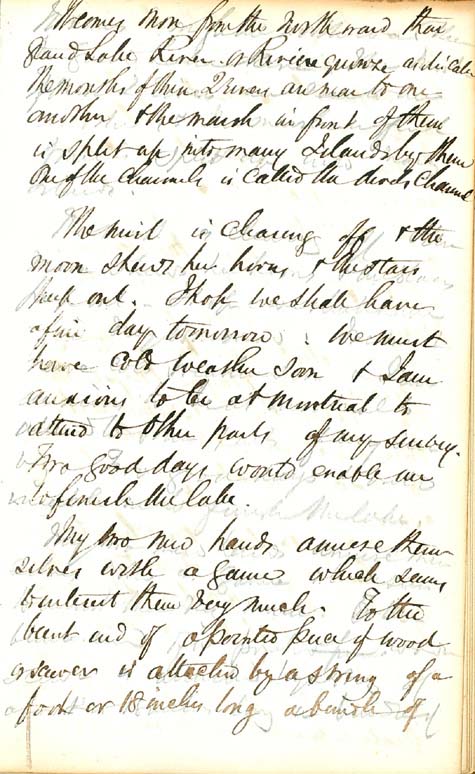 It comes more from the northward than
Grand Lake River or Rivière Quinze as it is called
The mouths of these 2 rivers are near to one
another & the marsh in front of them
is split up into many Islands by them
One of the Channels is called the devils Channel
The mist is clearing off & the
moon shews her horns & the stars
peep out. I hope we shall have
a fine day tomorrow. We must
have cold weather soon & I am
anxious to be at Montreal to
attend to other parts of my survey.
Two good days would enable me
to finish the lake.
My two new hands amuse them-
selves with a game which seems
to interest them very much. To the
blunt end of a pointed piece of wood
or skewer is attached by a string of a
foot or 18 inches long a bunch of